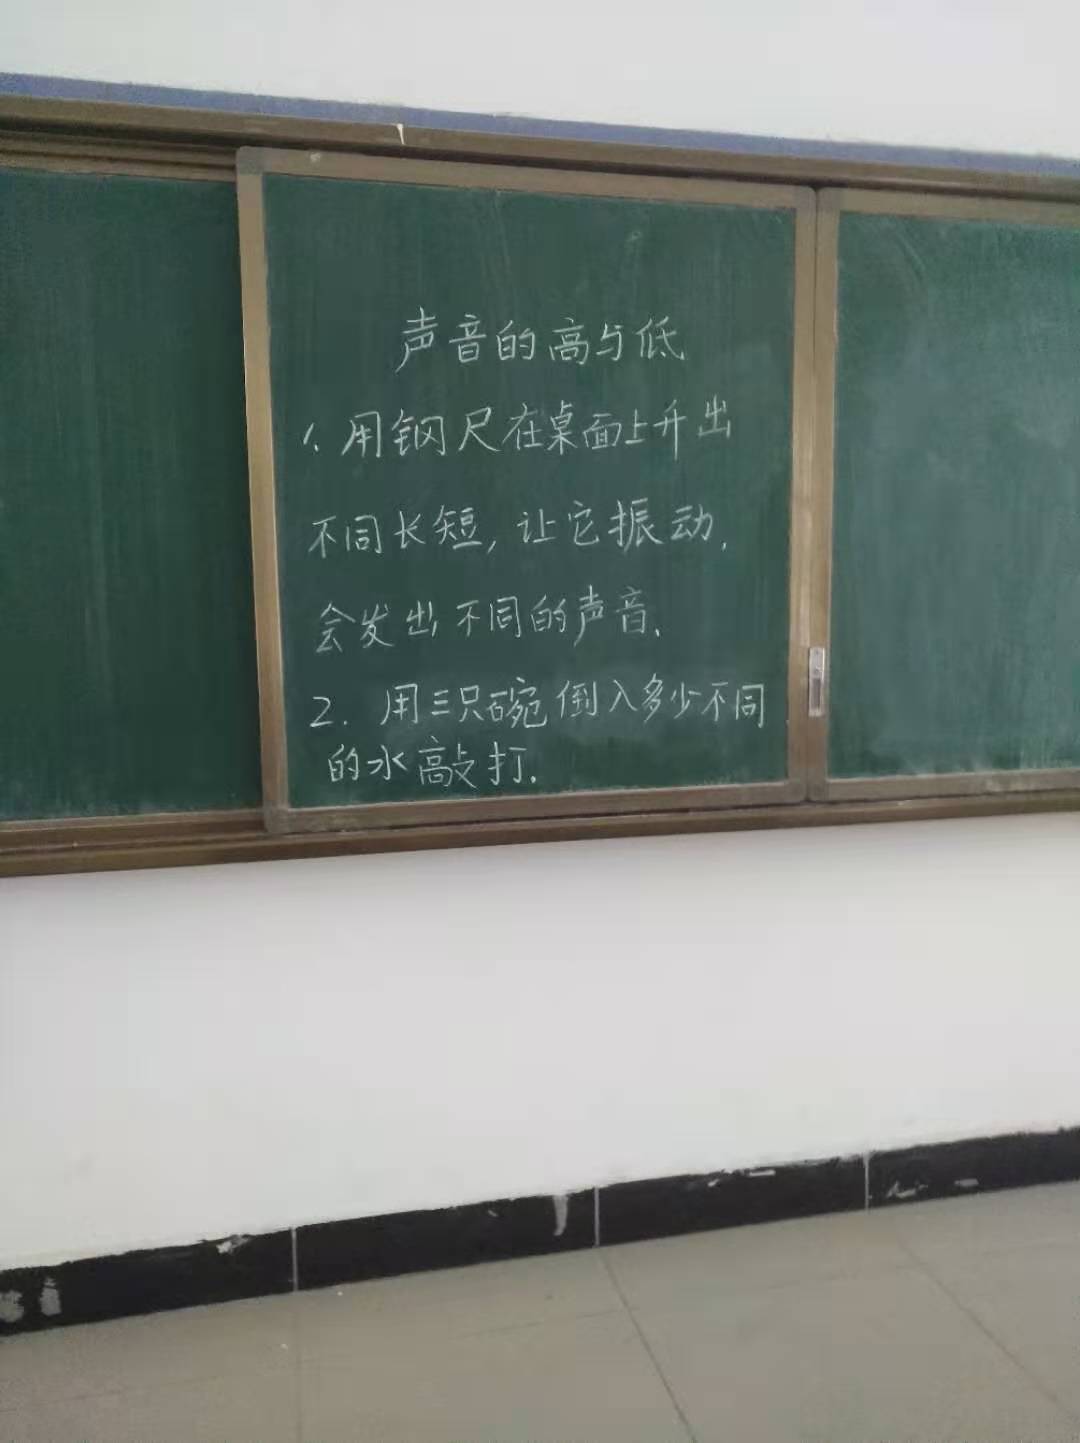 声音的高与低
1、用钢尺在桌面上升出
不同长短,让它振动,
会发出不同的声音.
2.用三只碗倒入多少不同
的水敲打.